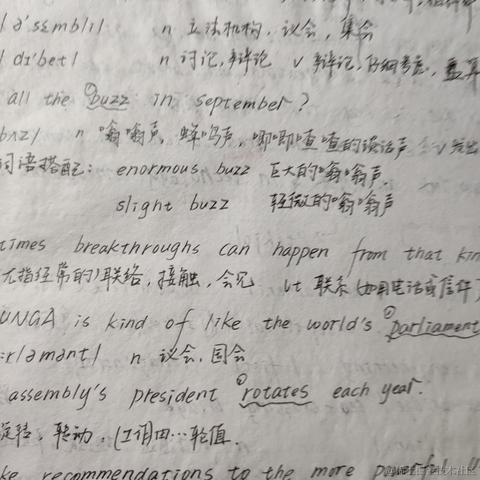 | ə'sɛmblɪ | n 立法机构，议会，集会
| dɪ'bet | n 讨论，辩论 v 辩论，仔细考虑，盘算
all the ①buzz in september?
bʌz | n 嗡嗡声，蜂鸣声，唧唧喳喳的谈话声 v 发出
词语搭配： enormous buzz 巨大的嗡嗡声，
slight buzz 轻微的嗡嗡声
times breakthroughs can happen from that kin
尤指经常的) 联络，接触，会见 vt 联系 (如用电话或信件)
UNGA is kind of like the world's ①parliament
rləmənt | n 议会，国会
assembly's president ①rotates each year.
旋转，转动，(工作)由…轮值.
ke recommendations to the more powerful